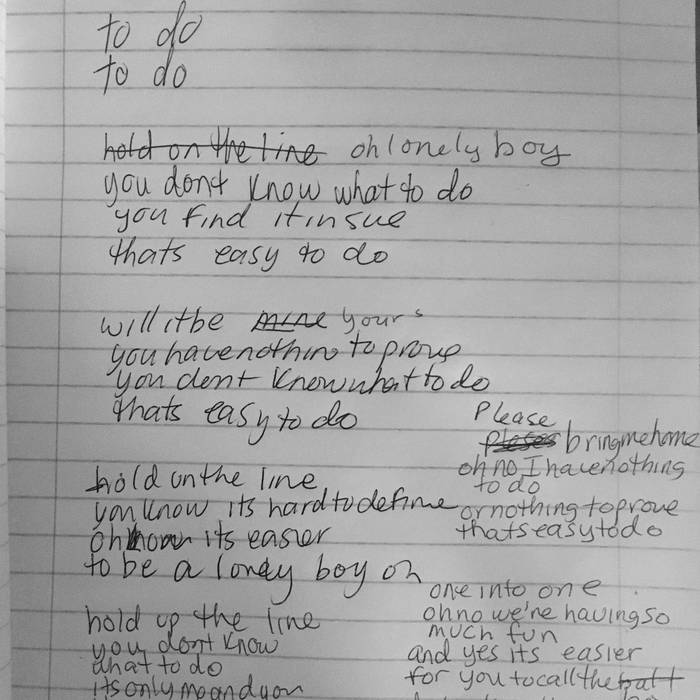 to do
to do
hold on the line oh lonely boy
you dont know what to do
you find it in sue
thats easy to do
will it be mine yours
you have nothin to prove
you dont know what to do
thats easy to do
hold on the line
you know its hard to define
oh its easier
to be a lonely boy oh
hold up the line
you dont know
what to do
its only me and you
Please
bring me home
oh no I have nothing
to do
or nothing to prove
thats easy to do
one into one
oh no we're having so
much fun
and yes its easier
for you to call the